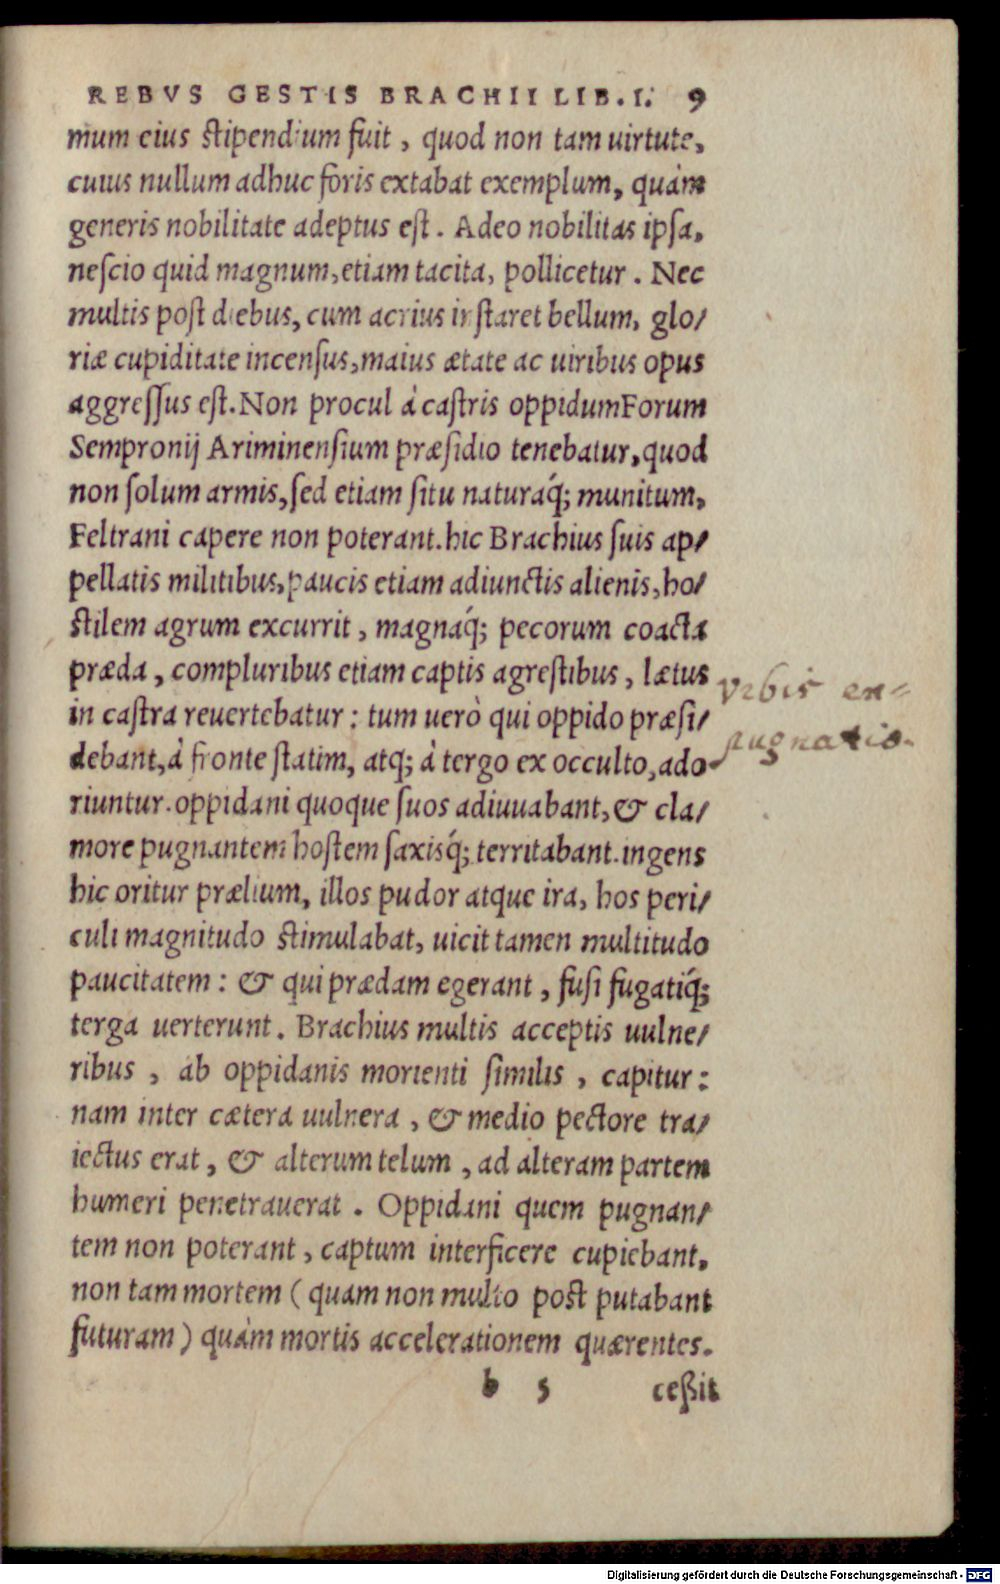 REBVS GESTIS BRACHII LIB.I. 9
mum eius stipendium fuit, quod non tam uirtute,
cuius nullum adhuc foris extabat exemplum, quàm
generis nobilitate adeptus est. Adeo nobilitas ipsa,
nescio quid magnum, etiam tacita, pollicetur. Nec
multis post diebus, cum acrius instaret bellum, glo/
riæ cupiditate incensus, maius ætate ac uiribus opus
aggressus est. Non procul à castris oppidum Forum
Sempronij Ariminensium præsidio tenebatur, quod
non solum armis, sed etiam situ naturaq́; munitum,
Feltrani capere non poterant. hic Brachius suis ap/
pellatis militibus, paucis etiam adiunctis alienis, ho/
stilem agrum excurrit, magnaq́; pecorum coacta
præda, compluribus etiam captis agrestibus, lætus
in castra reuertebatur: tum uerò qui oppido præsi/
debant, à fronte statim, atq; à tergo ex occulto, ado
riuntur. oppidani quoque suos adiuuabant, & cla/
more pugnantem hostem saxisq́; territabant. ingens
hic oritur prælium, illos pudor atque ira, hos peri/
culi magnitudo stimulabat, uicit tamen multitudo
paucitatem: & qui prædam egerant, fusi fugatiq́;
terga uerterunt. Brachius multis acceptis uulne/
ribus, ab oppidanis morienti similis, capitur:
nam inter cætera uulnera, & medio pectore tra/
iectus erat, & alterum telum, ad alteram partem
humeri penetrauerat. Oppidani quem pugnan/
tem non poterant, captum interficere cupiebant,
non tam mortem (quam non multo post putabant
futuram) quàm mortis accelerationem quærentes.
b 5 ceßit
Vrbis ex=
pugnatio.
Digitalisierung gefördert durch die Deutsche Forschungsgemeinschaft - DFG